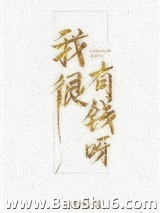 我很
有钱呀
www.BaoShu6.com